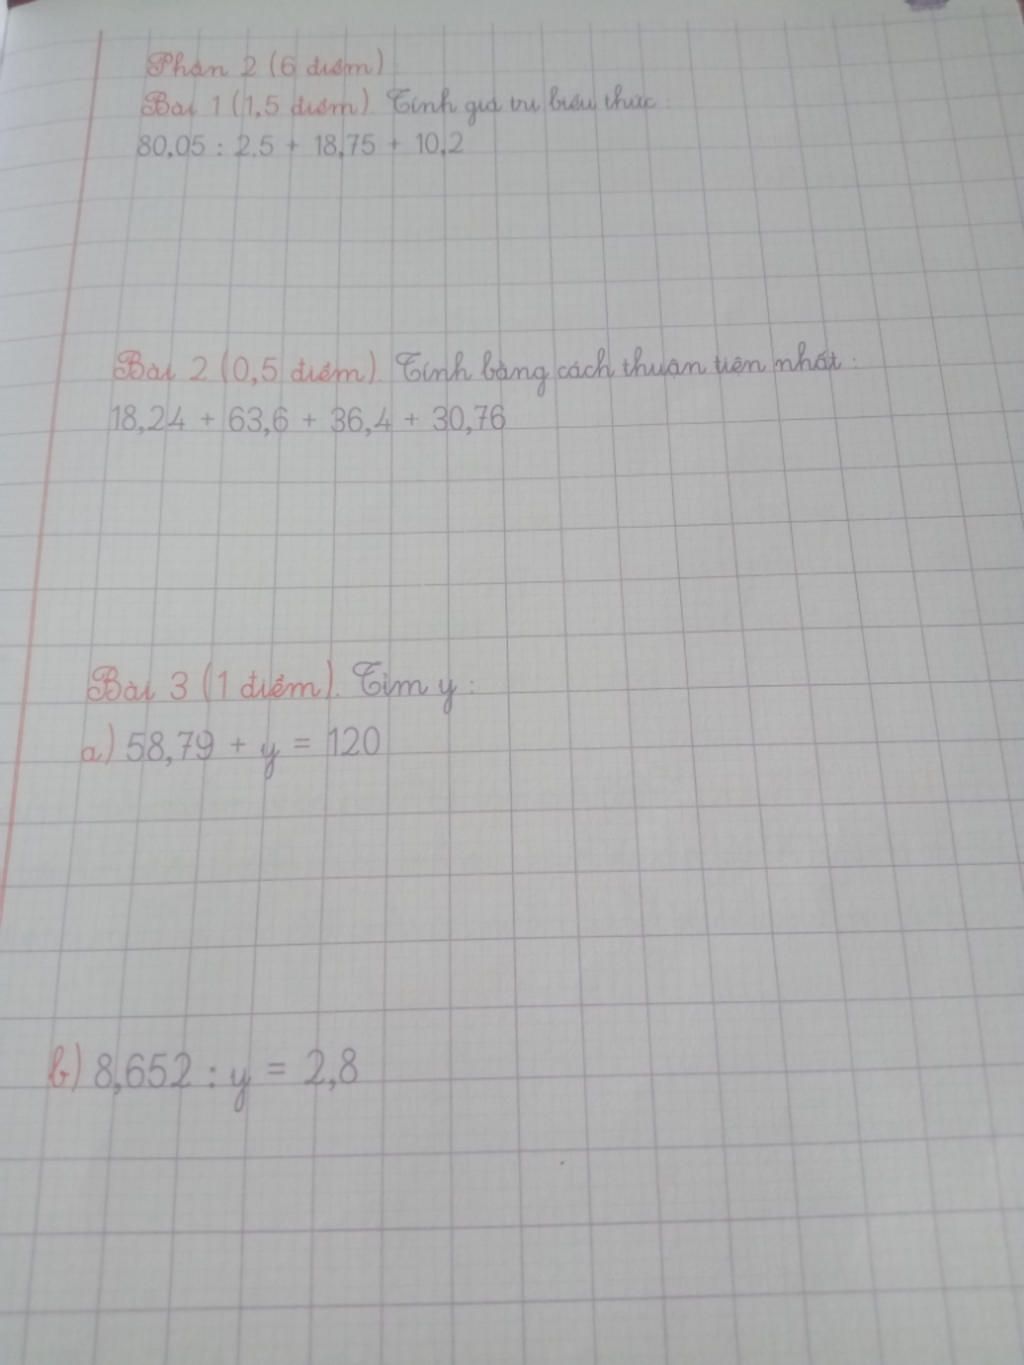 Phần 2 (6 điểm)
Bài 1 (1,5 điểm). Tính giá trị biểu thức:
80,05 : 2,5 + 18,75 + 10,2
Bài 2 (0,5 điểm). Tính bằng cách thuận tiện nhất:
18,24 + 63,6 + 36,4 + 30,76
Bài 3 (1 điểm). Tìm y:
a) 58,79 + y = 120
b) 8,652 : y = 2,8